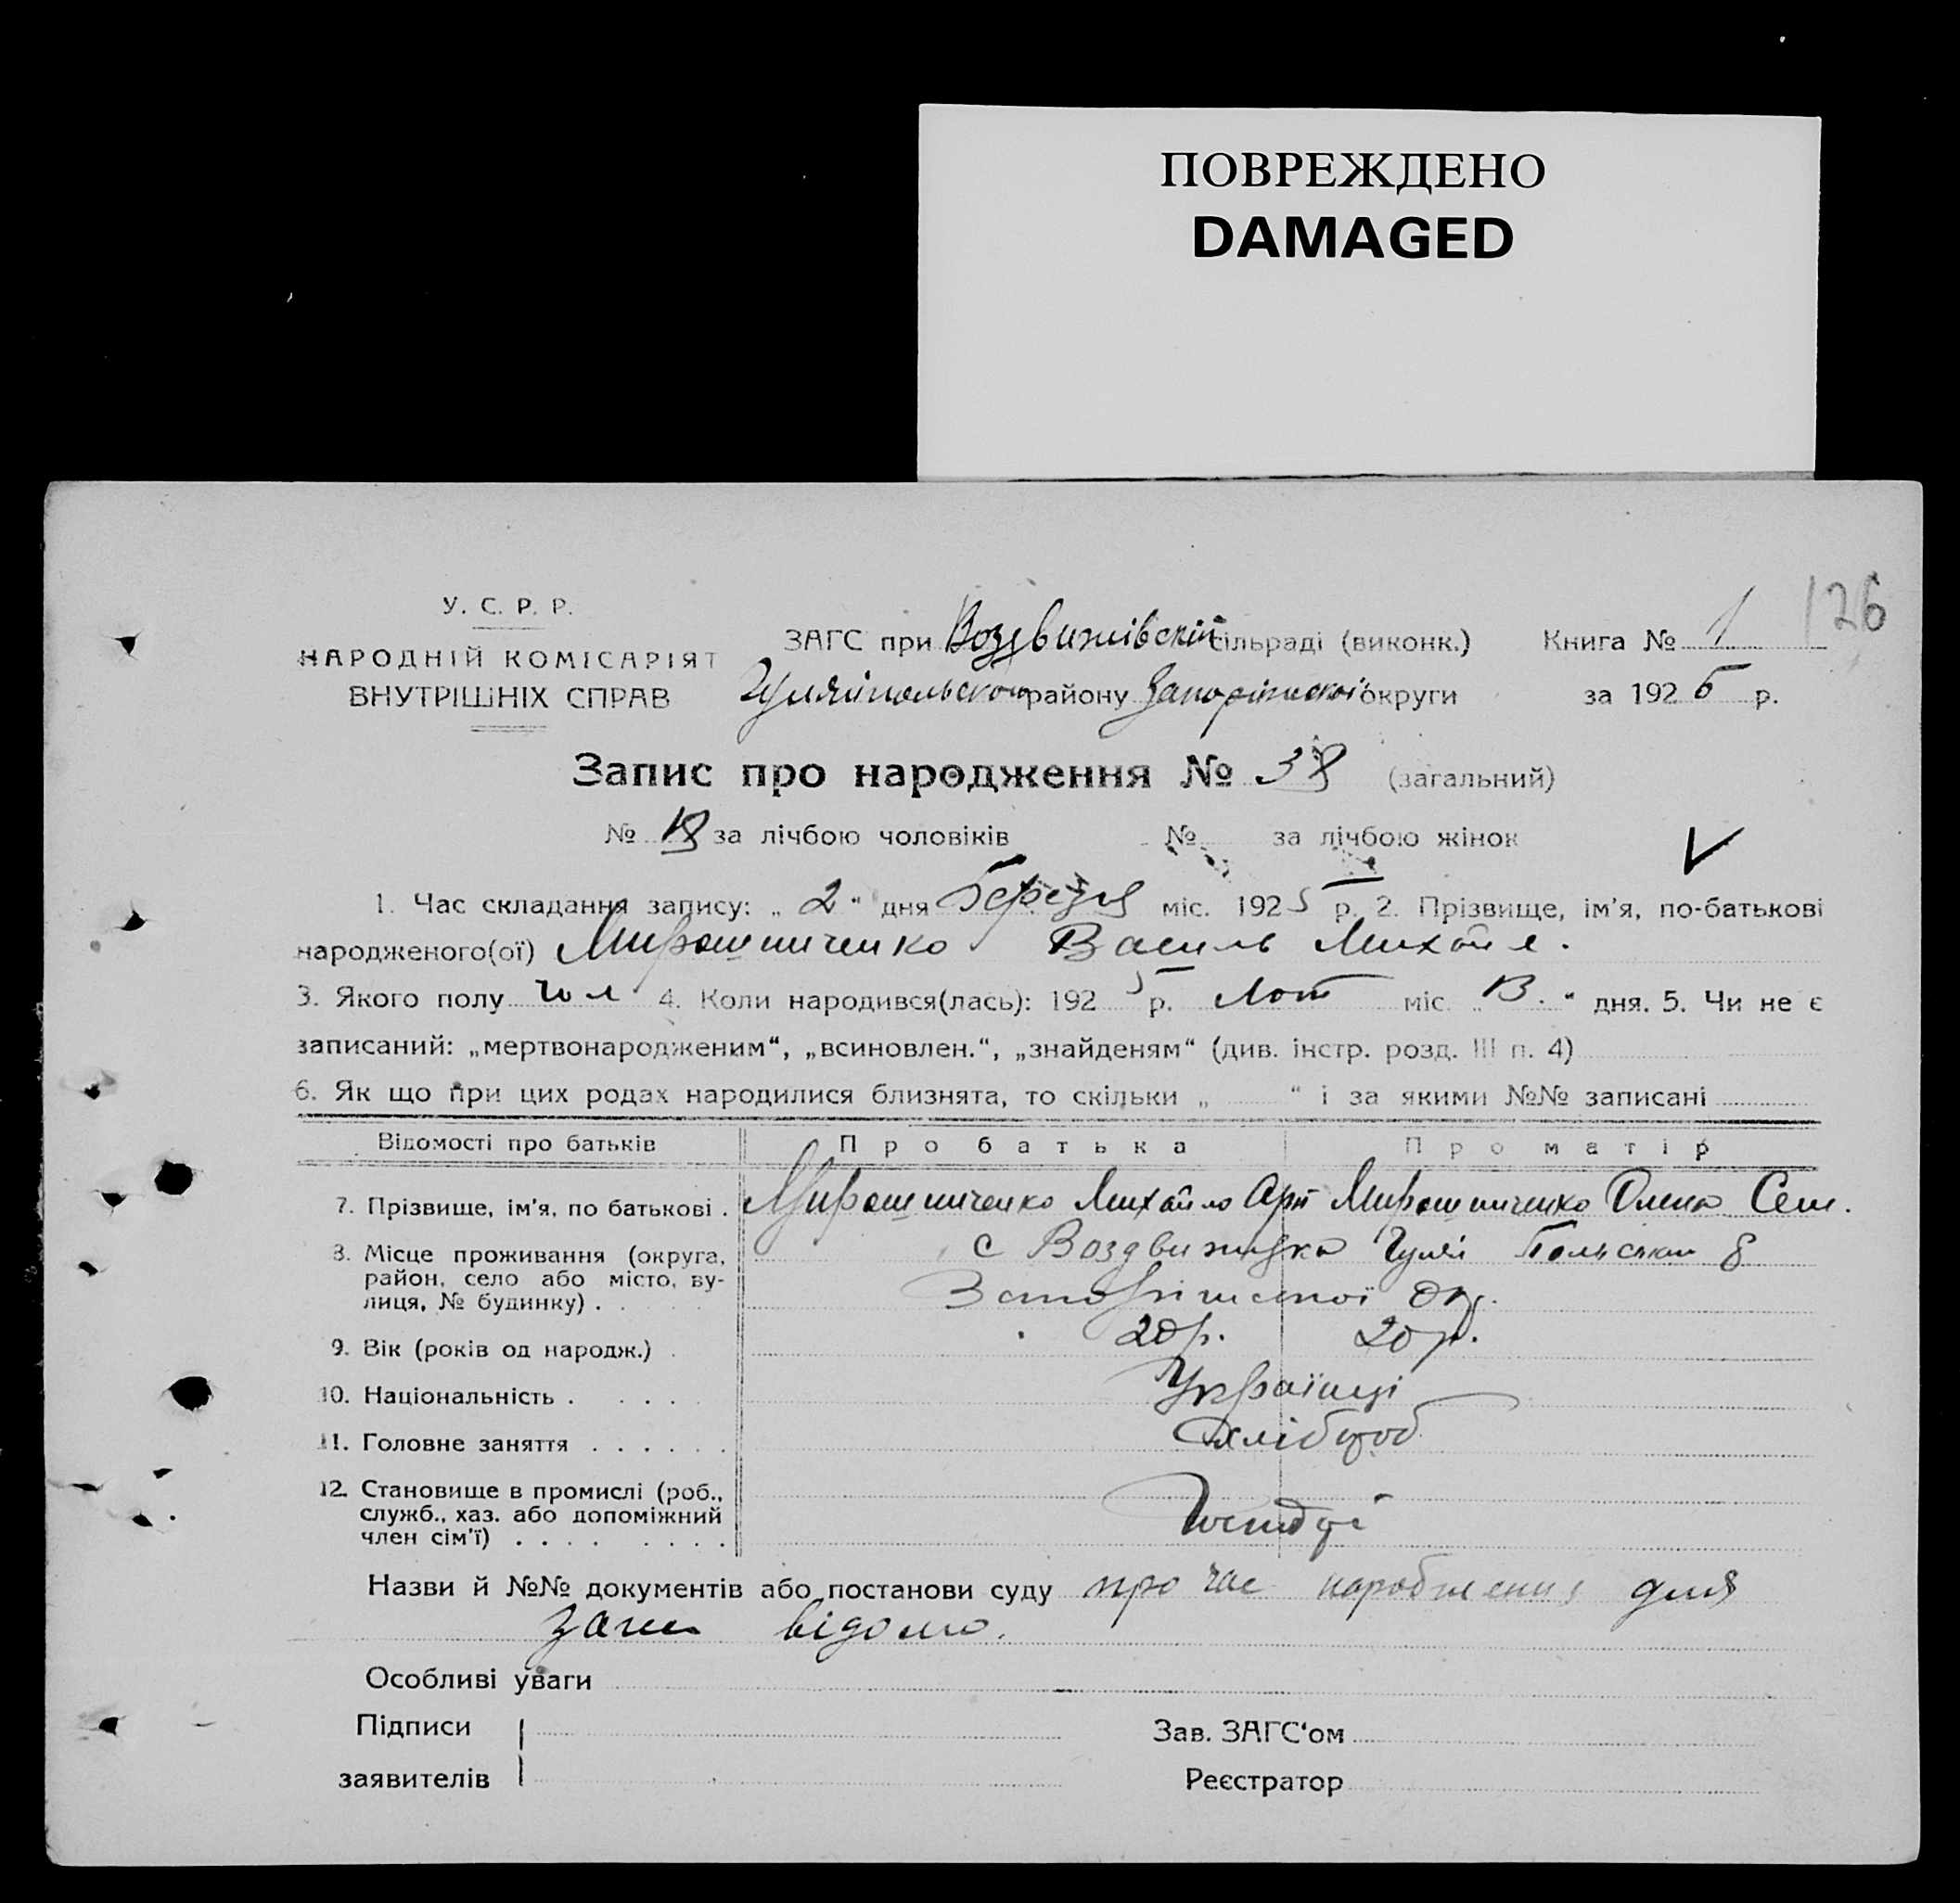 ПОВРЕЖДЕНО
DAMAGED
126
У. С. Р. Р.
НАРОДНІЙ КОМІСАРІЯТ
ВНУТРІШНІХ СПРАВ
ЗАГС при Воздвижівській сільраді (виконк.) Книга № 1
Гуляйпольского району Запоріжської округи за 1925 р.
Запис про народження № 38 (загальний)
№ 18 за лічбою чоловіків № за лічбою жінок
1. Час складання запису: „ 2 " дня Березня міс. 1925 р. 2. Прізвище, ім'я, по-батькові
народженого(ої) Мирошниченко Василь Михайл.
3. Якого полу чол 4. Коли народився(лась): 1925 р. Лют міс. „ 13. " дня. 5. Чи не є
записаний: „мертвонародженим", „всиновлен.", „знайденям" (див. інстр. розд. III п. 4)
6. Як що при цих родах народилися близнята, то скільки „ " і за якими №№ записані
Відомості про батьків Про батька Про матір
7. Прізвище, ім'я, по батькові . Мирошниченко Михайло Арт Мирошниченко Олена Сем.
8. Місце проживання (округа, с Воздвижівка Гуляй Польськ
район, село або місто, ву-
лиця, № будинку) . Запоріжської ок.
9. Вік (років од народж.) . 20 р. 20 р.
10. Національність . . . . Українці
11. Головне заняття . . . . . . хлібороб
12. Становище в промислі (роб.,
служб., хаз. або допоміжний
член сім'ї) . . . . . . . .
Назви й №№ документів або постанови суду про час народження для
відомо.
Особливі уваги
Підписи Зав. ЗАГС'ом
заявителів Реєстратор